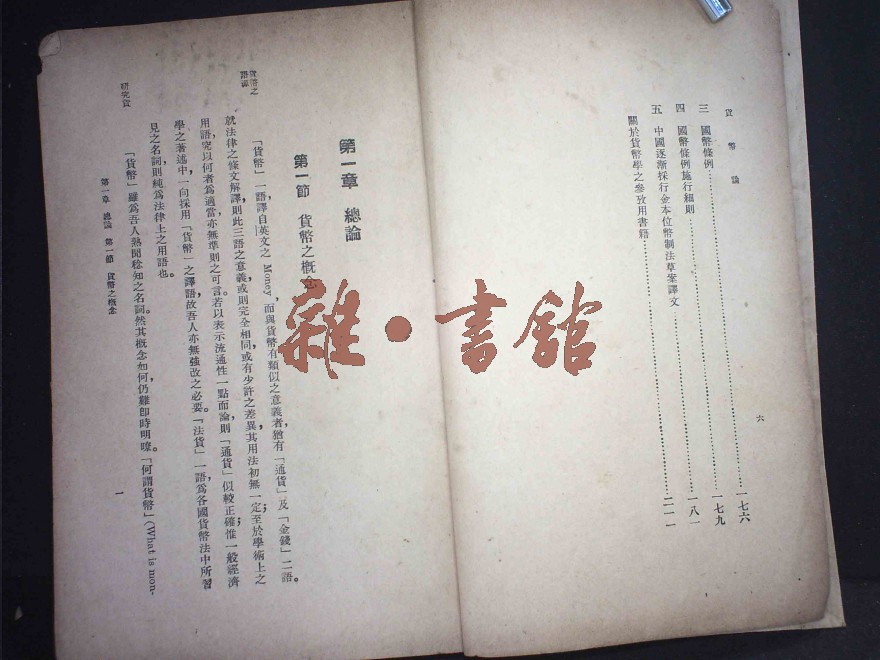 貨幣論
三 國幣條例……一七六
四 國幣條例施行細則……一七九
五 中國逐漸採行金本位幣制法草案譯文……一八一
關於貨幣學之參攷用書籍……二一一
六
第一章 總論
第一節 貨幣之概念
貨幣之
語源
「貨幣」一語，譯自英文之 Money，而與貨幣有類似之意義者，猶有「通貨」及「金錢」二語。
就法律之條文解譯，則此三語之意義，或則完全相同，或有少許之差異，其用法初無一定；至於學術上之
用語，究以何者為適當，亦無準則之可言。若以表示流通性一點而論，則「通貨」似較正確；惟一般經濟
學之著述中，一向採用「貨幣」之譯語，故吾人亦無強改之必要。「法貨」一語，爲各國貨幣法中所習
見之名詞，則純爲法律上之用語也。
研究貨
「貨幣」雖爲吾人熟聞稔知之名詞，然其概念如何，仍難卽時明瞭。「何謂貨幣」（What is mon-
第一章 總論 第一節 貨幣之概念
一
雜·書館